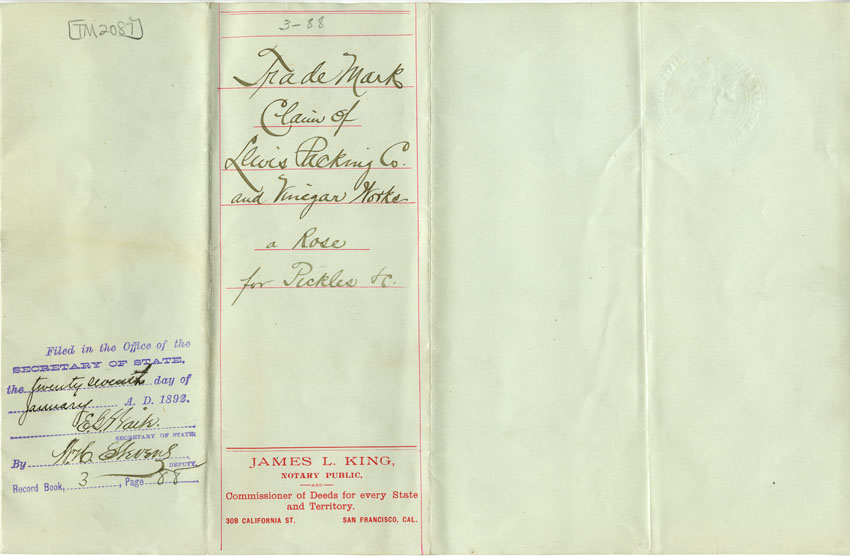 [TM2087]
3-88
Trade Mark
Claim of
Lewis Packing Co.
and Vinegar Works
a Rose
for Pickles &c.
Filed in the Office of the
SECRETARY OF STATE,
the twenty seventh day of
January A. D. 1892.
E. G. Waite
SECRETARY OF STATE
By W. C. Stevens
DEPUTY.
Record Book, 3, Page 88
JAMES L. KING,
NOTARY PUBLIC,
—AND—
Commissioner of Deeds for every State
and Territory.
308 CALIFORNIA ST. SAN FRANCISCO, CAL.